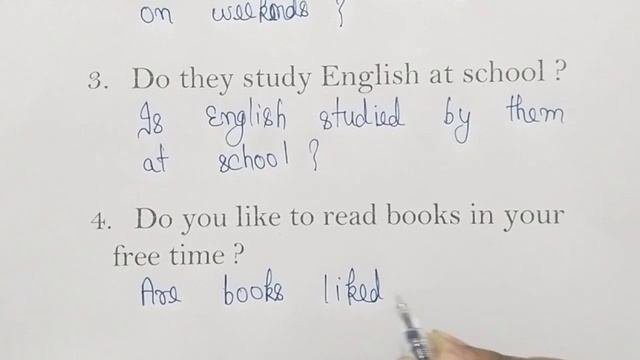 on weekends ?
3. Do they study English at school ?
Is English studied by them
at school ?
4. Do you like to read books in your
free time ?
Are books liked